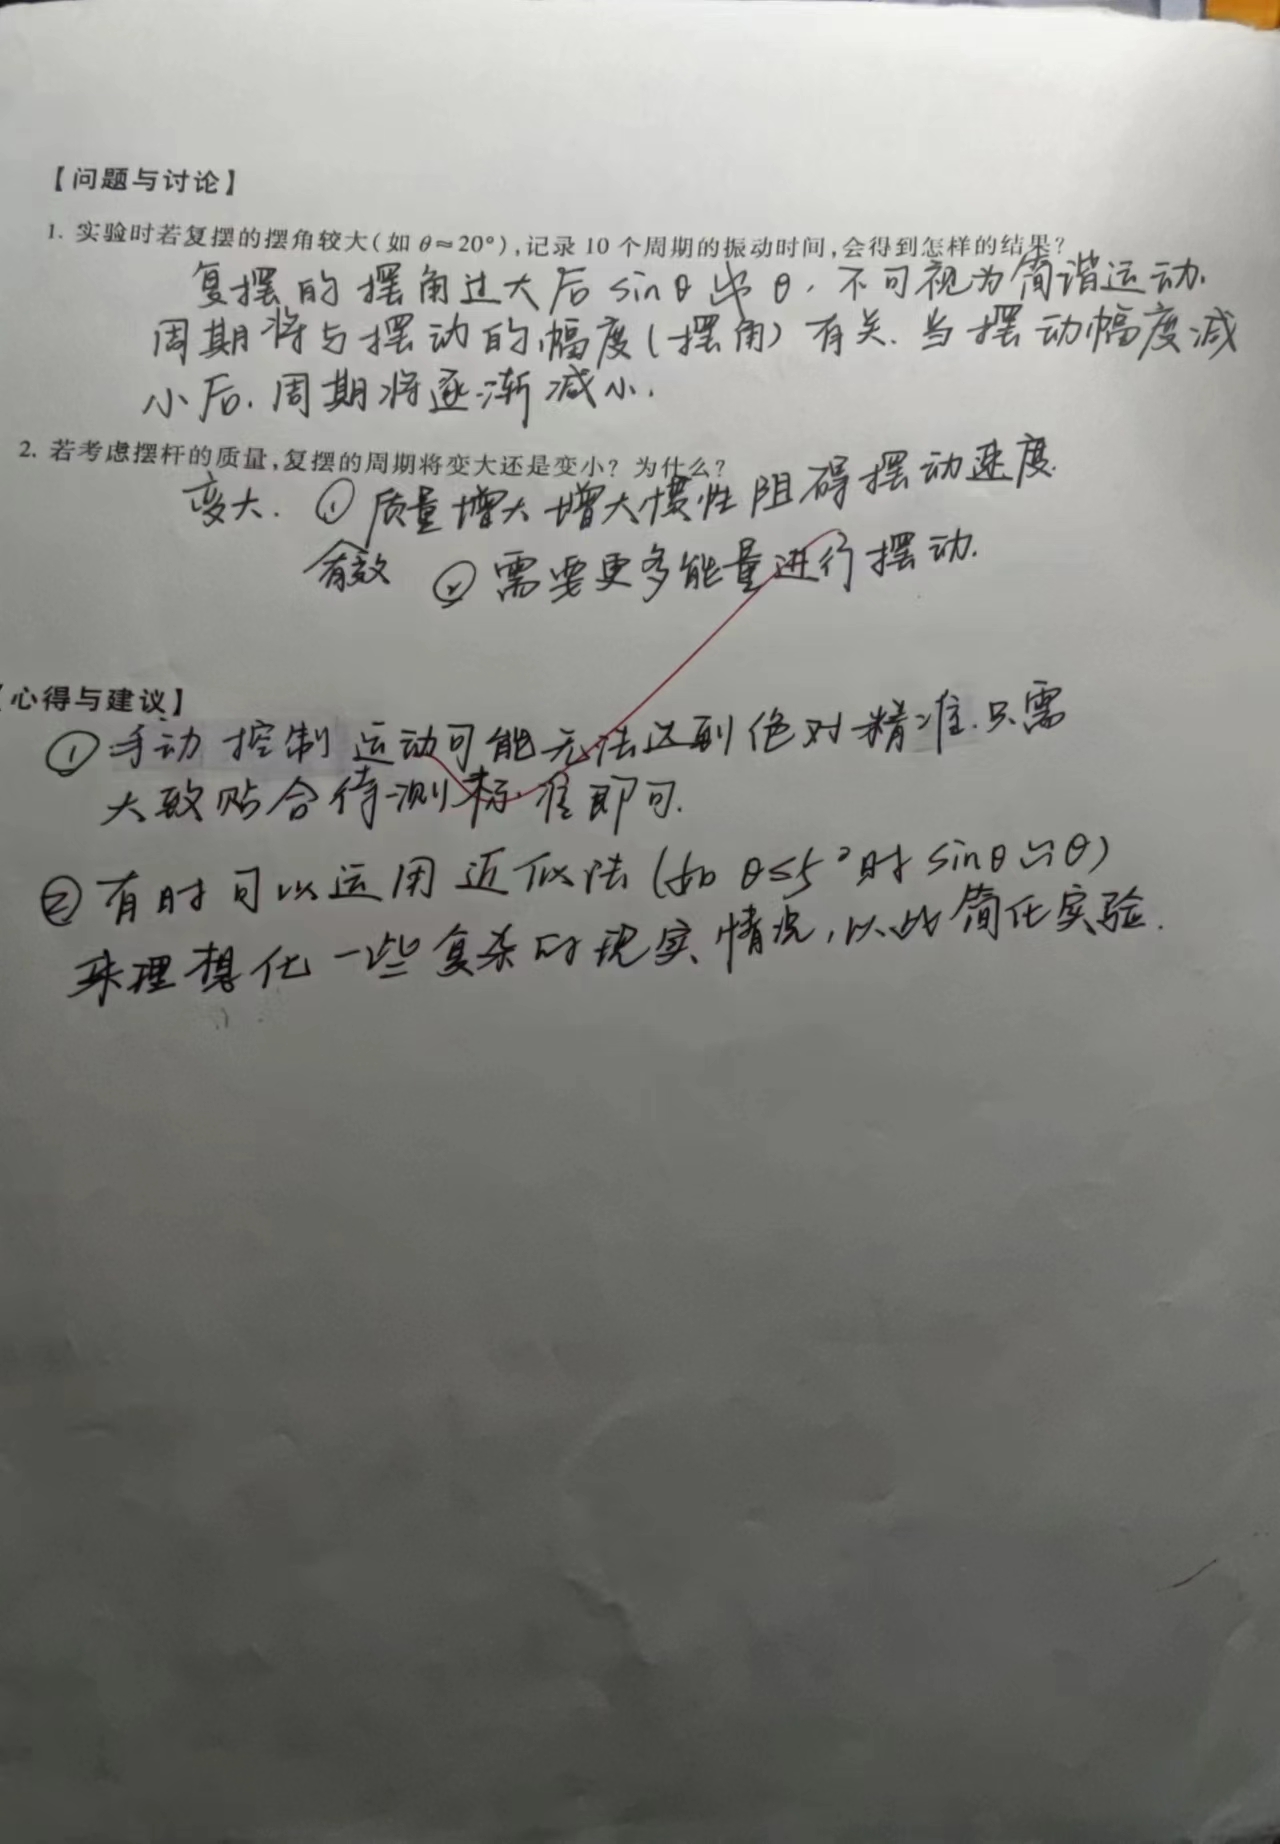 【问题与讨论】
1. 实验时若复摆的摆角较大(如 θ≈20°),记录 10 个周期的振动时间,会得到怎样的结果?
复摆的摆角过大后 sinθ≄θ, 不可视为简谐运动.
周期将与摆动的幅度(摆角)有关. 当摆动幅度减
小后. 周期将逐渐减小.
2. 若考虑摆杆的质量,复摆的周期将变大还是变小? 为什么?
变大. ① 质量增大增大惯性阻碍摆动速度.
有效 ② 需要更多能量进行摆动.
【心得与建议】
① 手动控制运动可能无法达到绝对精准.只需
大致贴合待测标准即可.
② 有时可以运用近似法(如 θ≤5°时 sinθ≃θ)
来理想化一些复杂的现实情况,以此简化实验.